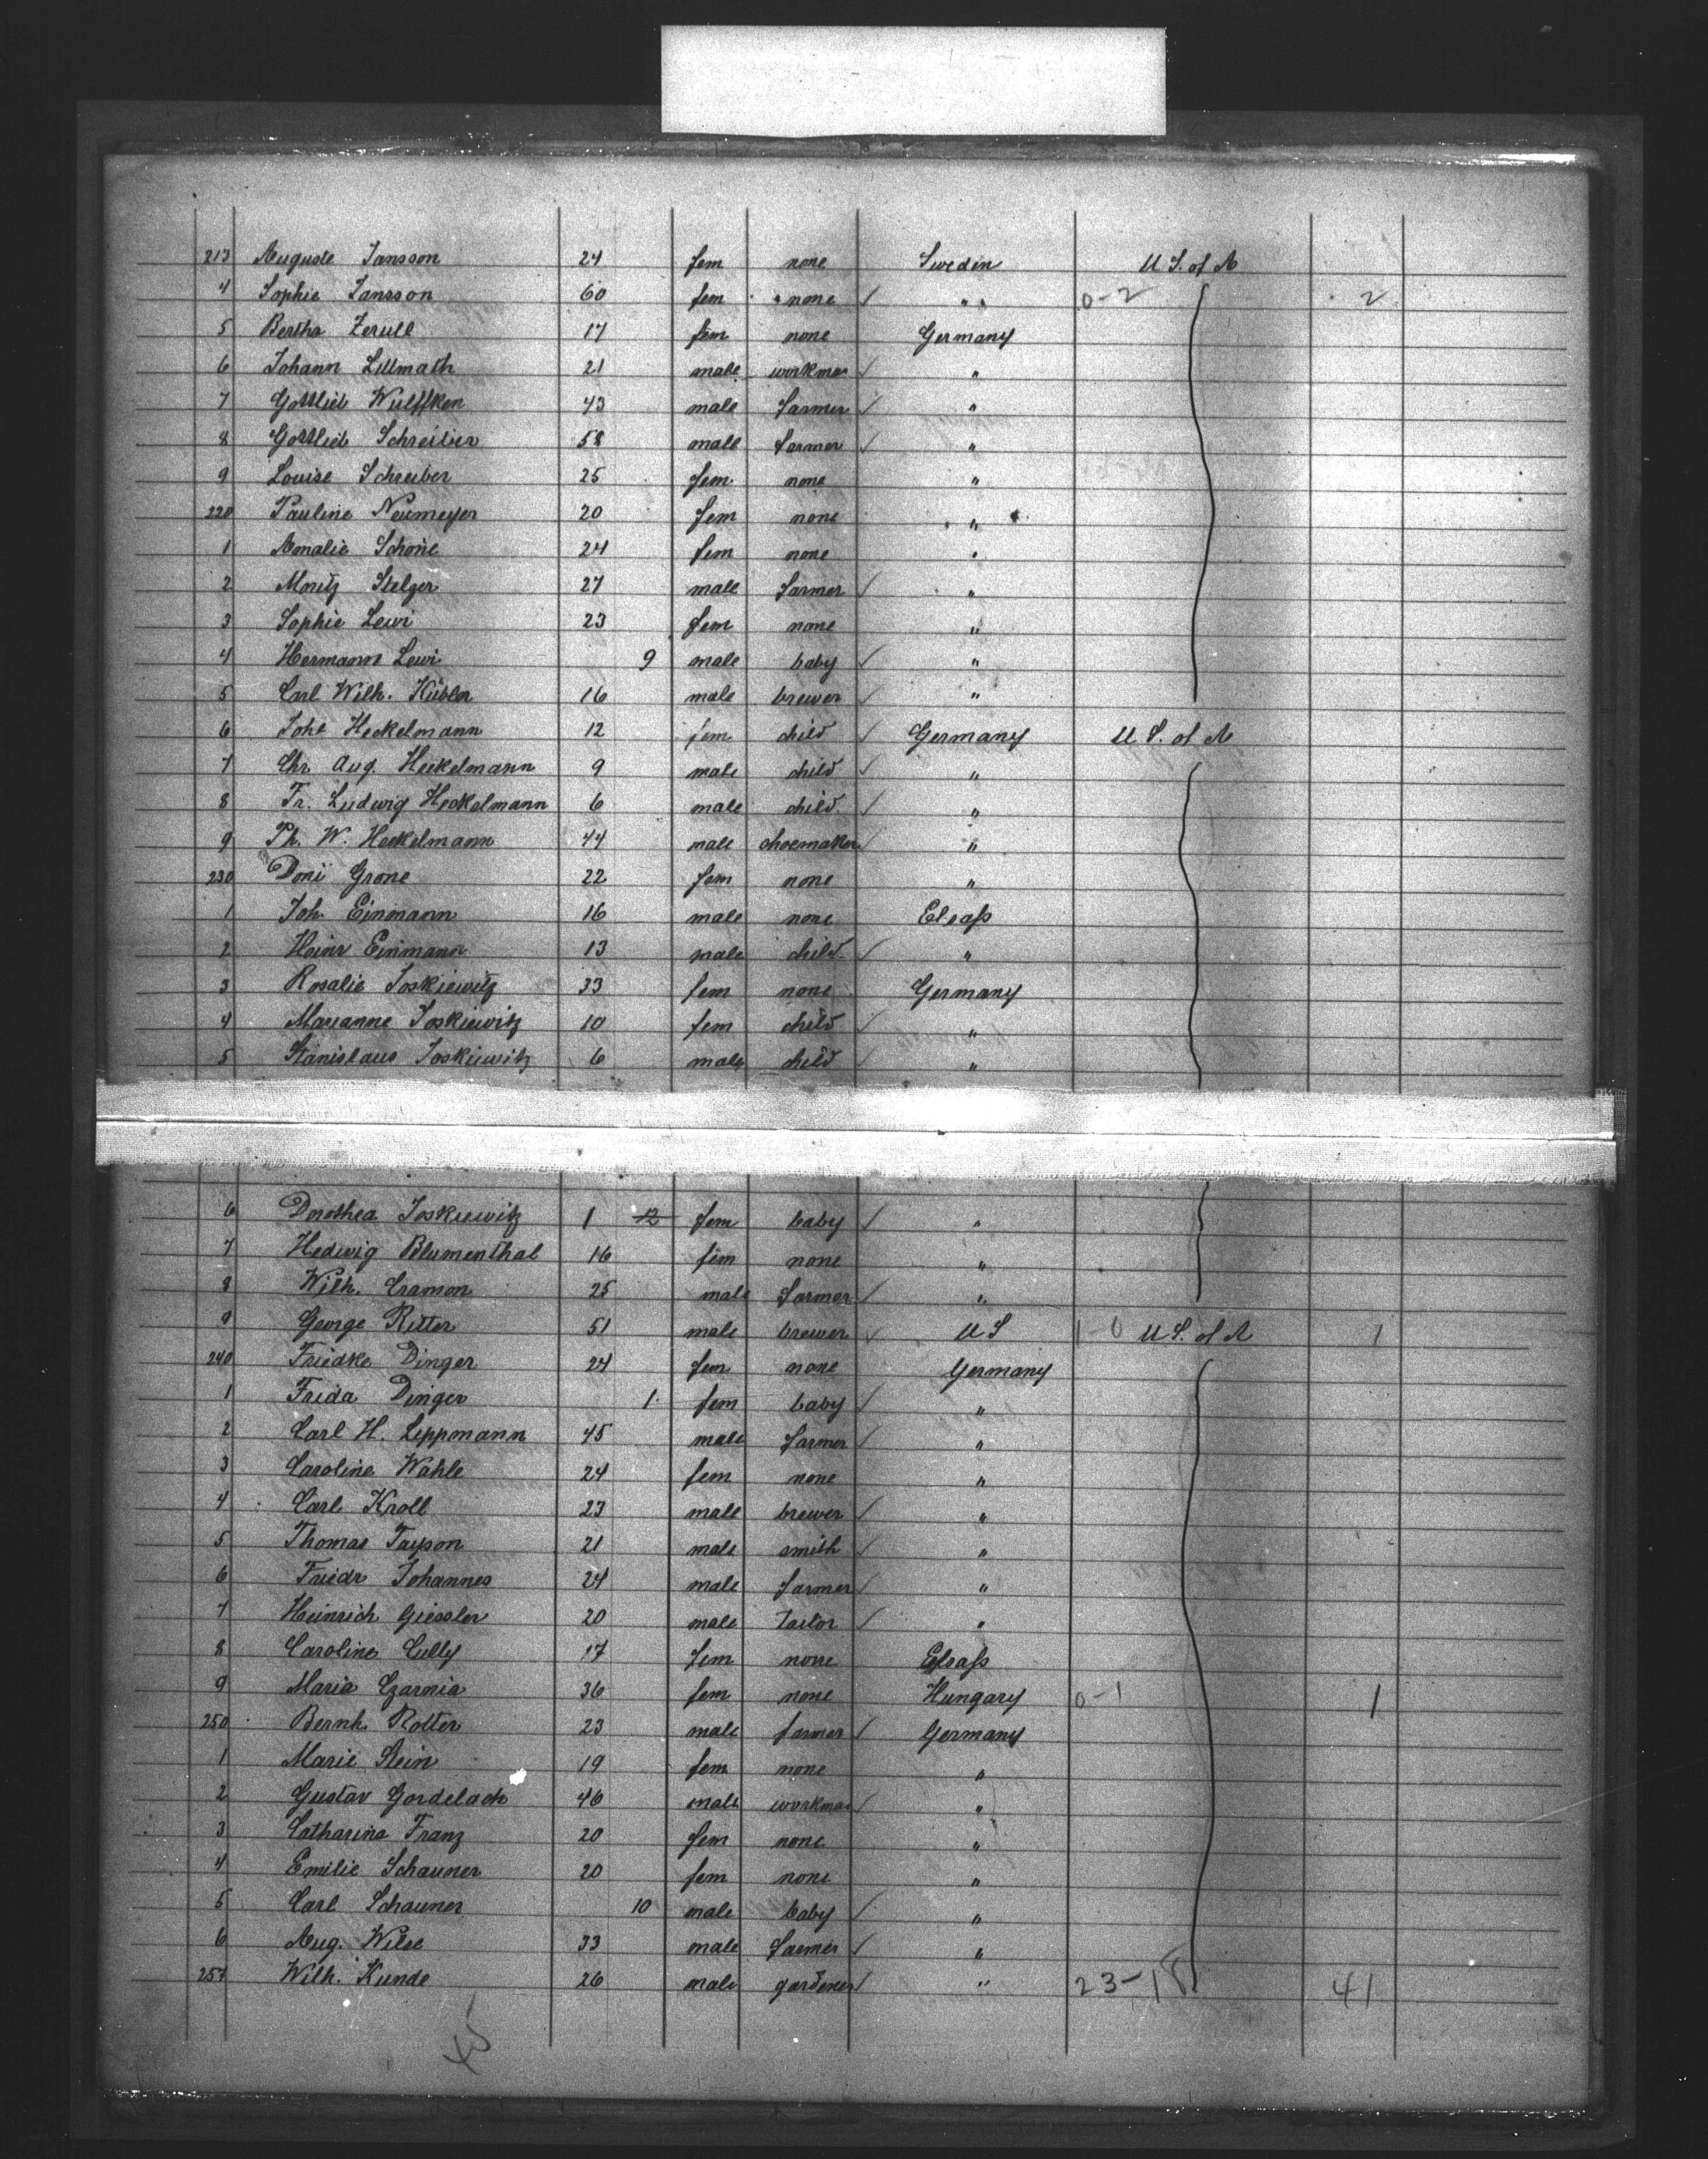 213 Auguste Jansson 24 fem none Sweden U.S. of A
4 Sophie Jansson 60 fem none " " 0-2 2
5 Bertha Zerull 17 fem none Germany
6 Johann Lillmath 21 male workman "
7 Gottlieb Wulffken 43 male farmer "
8 Gottlieb Schreiber 58 male farmer "
9 Louise Schreiber 25 fem none "
220 Pauline Neumeyer 20 fem none "
1 Amalie Schöne 24 fem none "
2 Moritz Stelger 27 male farmer "
3 Sophie Lewi 23 fem none "
4 Hermann Lewi 9 male baby "
5 Carl Wilh. Kübler 16 male brewer "
6 Johe Heckelmann 12 fem child Germany U S. of A
7 Chr. Aug. Heckelmann 9 male child "
8 Fr. Ludwig Heckelmann 6 male child "
9 Ph. W. Heckelmann 44 male choemaker "
230 Dori Grone 22 fem none "
1 Joh. Einmann 16 male none Elsaß
2 Heinr Einmann 13 male child "
3 Rosalie Joskiewitz 33 fem none Germany
4 Marianne Joskiewitz 10 fem child "
5 Stanislaus Joskiewitz 6 male child "
6 Dorothea Joskiewitz 1 12 fem baby "
7 Hedwig Blumenthal 16 fem none "
8 Wilh. Cramon 25 male farmer "
9 George Ritter 51 male brewer U S 1-0 U S. of A 1
240 Friedke Dinger 24 fem none Germany
1 Frida Dinger 1 fem baby "
2 Carl H. Leppmann 45 male farmer "
3 Caroline Wahle 24 fem none "
4 Carl Kroll 23 male brewer "
5 Thomas Tayson 21 male smith "
6 Friedr Johannes 24 male farmer "
7 Heinrich Giessler 20 male tailor "
8 Caroline Cully 17 fem none Elsaß
9 Maria Czarnia 36 fem none Hungary 0-1 1
250 Bernh. Rotter 23 male farmer Germany
1 Marie Stein 19 fem none "
2 Gustav Gordelach 46 male workman "
3 Catharina Franz 20 fem none "
4 Emilie Schauner 20 fem none "
5 Carl Schauner 10 male baby "
6 Aug. Wilse 33 male farmer "
257 Wilh. Kunde 26 male gardener " 23-18 41
45